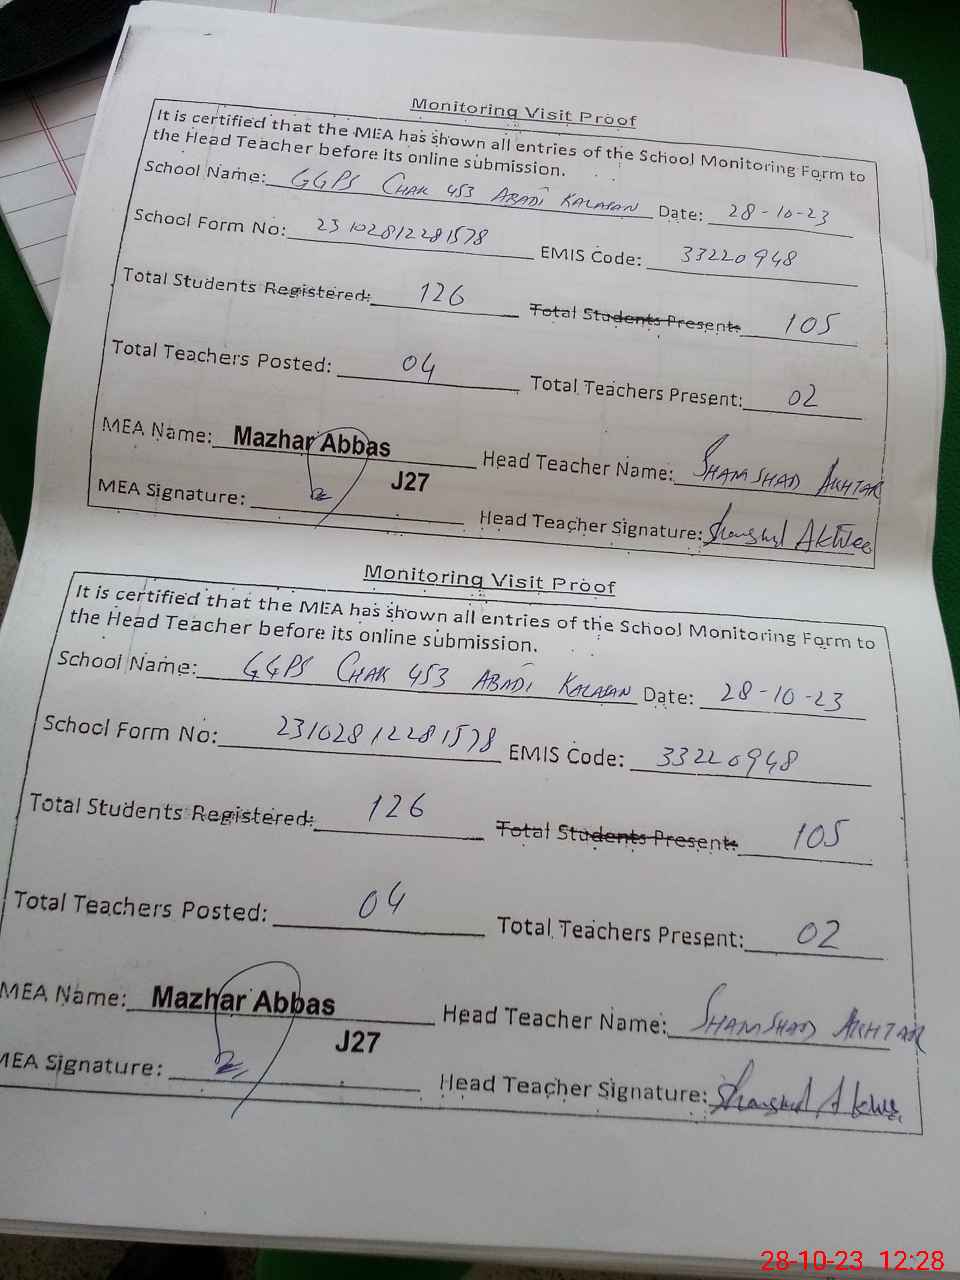 Monitoring Visit Proof
It is certified that the MEA has shown all entries of the School Monitoring Form to
the Head Teacher before its online submission.
School Name: GGPS CHAK 453 ABADI KALASAN Date: 28-10-23
School Form No: 23102812281578 EMIS Code: 33220948
Total Students Registered: 126 Total Students Present: 105
Total Teachers Posted: 04 Total Teachers Present: 02
MEA Name: Mazhar Abbas Head Teacher Name: SHAMSHAD AKHTAR
J27
MEA Signature: Head Teacher Signature: Shamshad Akhtar
Monitoring Visit Proof
It is certified that the MEA has shown all entries of the School Monitoring Form to
the Head Teacher before its online submission.
School Name: GGPS CHAK 453 ABADI KALASAN Date: 28-10-23
School Form No: 23102812281578 EMIS Code: 33220948
Total Students Registered: 126 Total Students Present: 105
Total Teachers Posted: 04 Total Teachers Present: 02
MEA Name: Mazhar Abbas Head Teacher Name: SHAMSHAD AKHTAR
J27
MEA Signature: Head Teacher Signature: Shamshad Akhtar
28-10-23 12:28